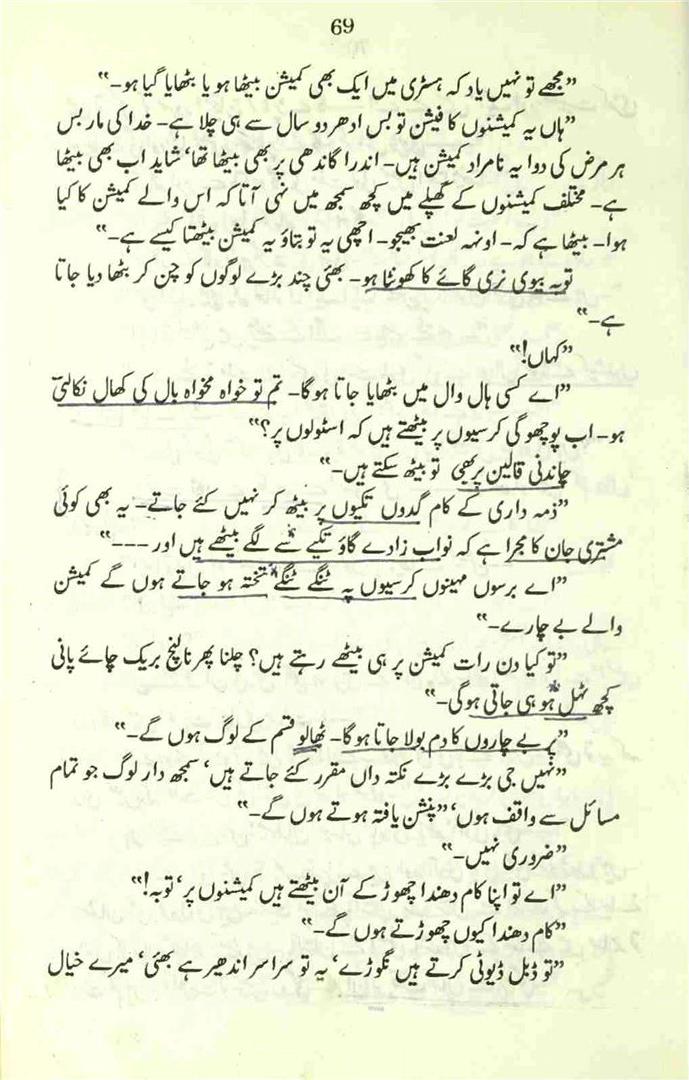 69
”مجھے تو نہیں یاد کہ ہسٹری میں ایک بھی کمیشن بیٹھا ہو یا بٹھایا گیا ہو۔“
”ہاں یہ کمیشنوں کا فیشن تو بس ادھر دو سال سے ہی چلا ہے۔ خدا کی مار بس
ہر مرض کی دوا یہ نامراد کمیشن ہیں۔ اندرا گاندھی پر بھی بیٹھا تھا‘ شاید اب بھی بیٹھا
ہے۔ مختلف کمیشنوں کے گھپلے میں کچھ سمجھ میں نہی آتا کہ اس والے کمیشن کا کیا
ہوا۔ بیٹھا ہے کہ۔ اونہہ لعنت بھیجو۔ اچھی یہ تو بتاؤ یہ کمیشن بیٹھتا کیسے ہے۔“
توبہ بیوی نری گائے کا کھونٹا ہو۔ بھئی چند بڑے لوگوں کو چن کر بٹھا دیا جاتا
ہے۔“
”کہاں!“
”اے کسی ہال وال میں بٹھایا جاتا ہوگا۔ تم تو خواہ مخواہ بال کی کھال نکالتی
ہو۔ اب پوچھو گی کرسیوں پر بیٹھتے ہیں کہ اسٹولوں پر؟“
چاندنی قالین پر بھی تو بیٹھ سکتے ہیں۔“
”ذمہ داری کے کام گدوں تکیوں پر بیٹھ کر نہیں کئے جاتے۔ یہ بھی کوئی
مشتری جان کا مجرا ہے کہ نواب زادے گاؤ تکیے سے لگے بیٹھے ہیں اور ---“
”اے برسوں مہینوں کرسیوں پہ ٹنگے ٹنگے تختہ ہو جاتے ہوں گے کمیشن
والے بے چارے۔“
”تو کیا دن رات کمیشن پر ہی بیٹھے رہتے ہیں؟ چلنا پھرنا لنچ بریک چائے پانی
کچھ ٹہل ہو ہی جاتی ہوگی۔“
”پر بے چاروں کا دم بولا جاتا ہوگا۔ ٹھالو قسم کے لوگ ہوں گے۔“
”نہیں جی بڑے بڑے نکتہ داں مقرر کئے جاتے ہیں‘ سمجھ دار لوگ جو تمام
مسائل سے واقف ہوں‘ ”پنشن یافتہ ہوتے ہوں گے۔“
”ضروری نہیں۔“
”اے تو اپنا کام دھندا چھوڑ کے آن بیٹھتے ہیں کمیشنوں پر‘ توبہ!“
”کام دھندا کیوں چھوڑتے ہوں گے۔“
”تو ڈبل ڈیوٹی کرتے ہیں نگوڑے‘ یہ تو سراسر اندھیر ہے بھئی‘ میرے خیال